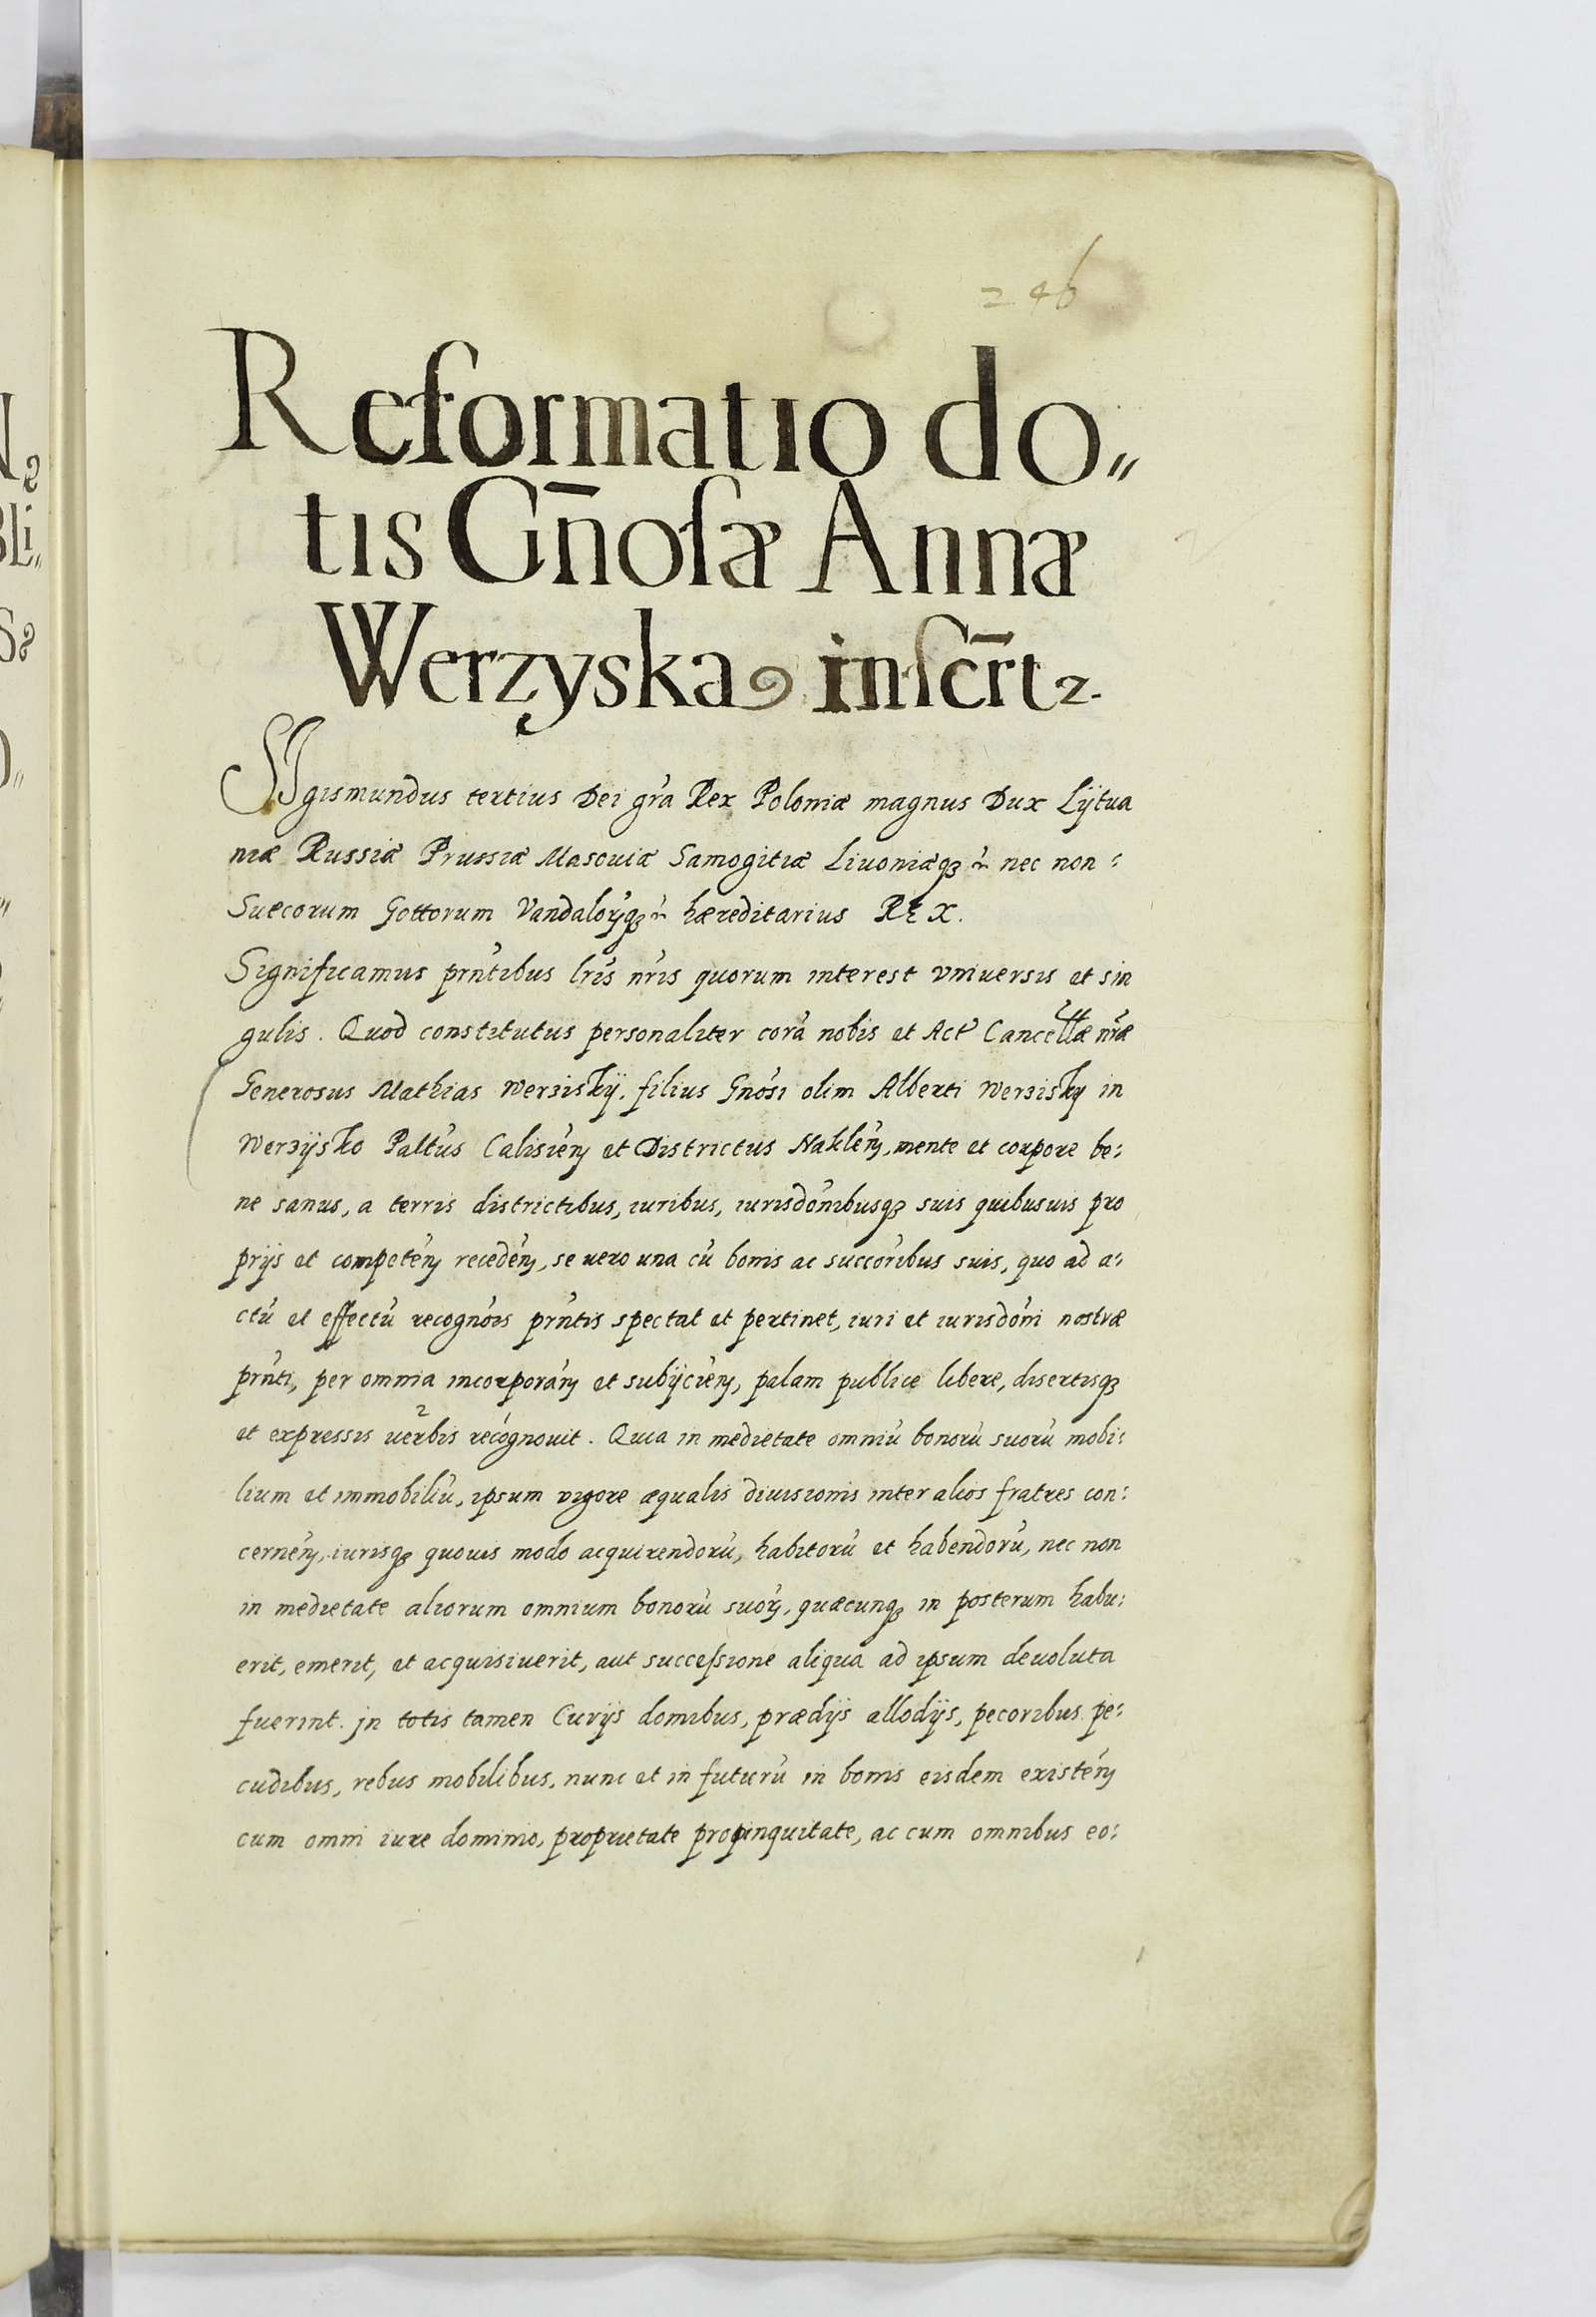 246
Reformatio do„
tis Gn̄osæ Annæ
Werzyska inscr̄t
SJgismundus tertius Dei gr̃a Rex Poloniæ magnus Dux Lÿtua
niæ Russiæ Prussiæ Masouiæ Samogitiæ Liuoniæqꝫ nec non :
Suecorum Gottorum Vandalorꝫqꝫ hæreditarius REX.
Significamus prñtibus lr̃is nr̃is quorum interest vniuersis et sin
gulis. Quod constitutus personaliter corã nobis et Act Cancellæ nr̃æ
Generosus Mathias Werzisky. filius Gnõsi olim Alberti Werzisky in
Werzÿsko Paltũs Calisieñ et Districtus Nakleñ, mente et corpore be:
ne sanus, a terris districtibus, iuribus, iurisdõnibusqꝫ suis quibusuis pro
prÿs et competeñ recedeñ, se uero una cũ bonis ac succõribus suis, quo ad a:
ctũ et effectũ recognõis prñtis spectat et pertinet, iuri et iurisdõni nostræ
prñti, per omnia incorporañ et subÿcieñ, palam publice libere, disertisqꝫ
et expressis uerbis recognouit. Quia in medietate omniũ bonorũ suorũ mobi:
lium et immobiliũ, ipsum vigore æqualis diuisionis inter alios fratres con:
cerneñ, iurisqꝫ quouis modo acquirendorũ, habitorũ et habendorũ, nec non
in medietate aliorum omnium bonorũ suorꝫ, quæcunqꝫ in posterum habu:
erit, emerit, et acquisiuerit, aut successione aliqua ad ipsum deuoluta
fuerint. jn totis tamen Curÿs domibus, prædÿs allodÿs, pecoribus pe:
cudibus, rebus mobilibus, nunc et in futurũ in bonis eisdem existeñ
cum omni iure dominio, proprietate propinquitate, ac cum omnibus eo: